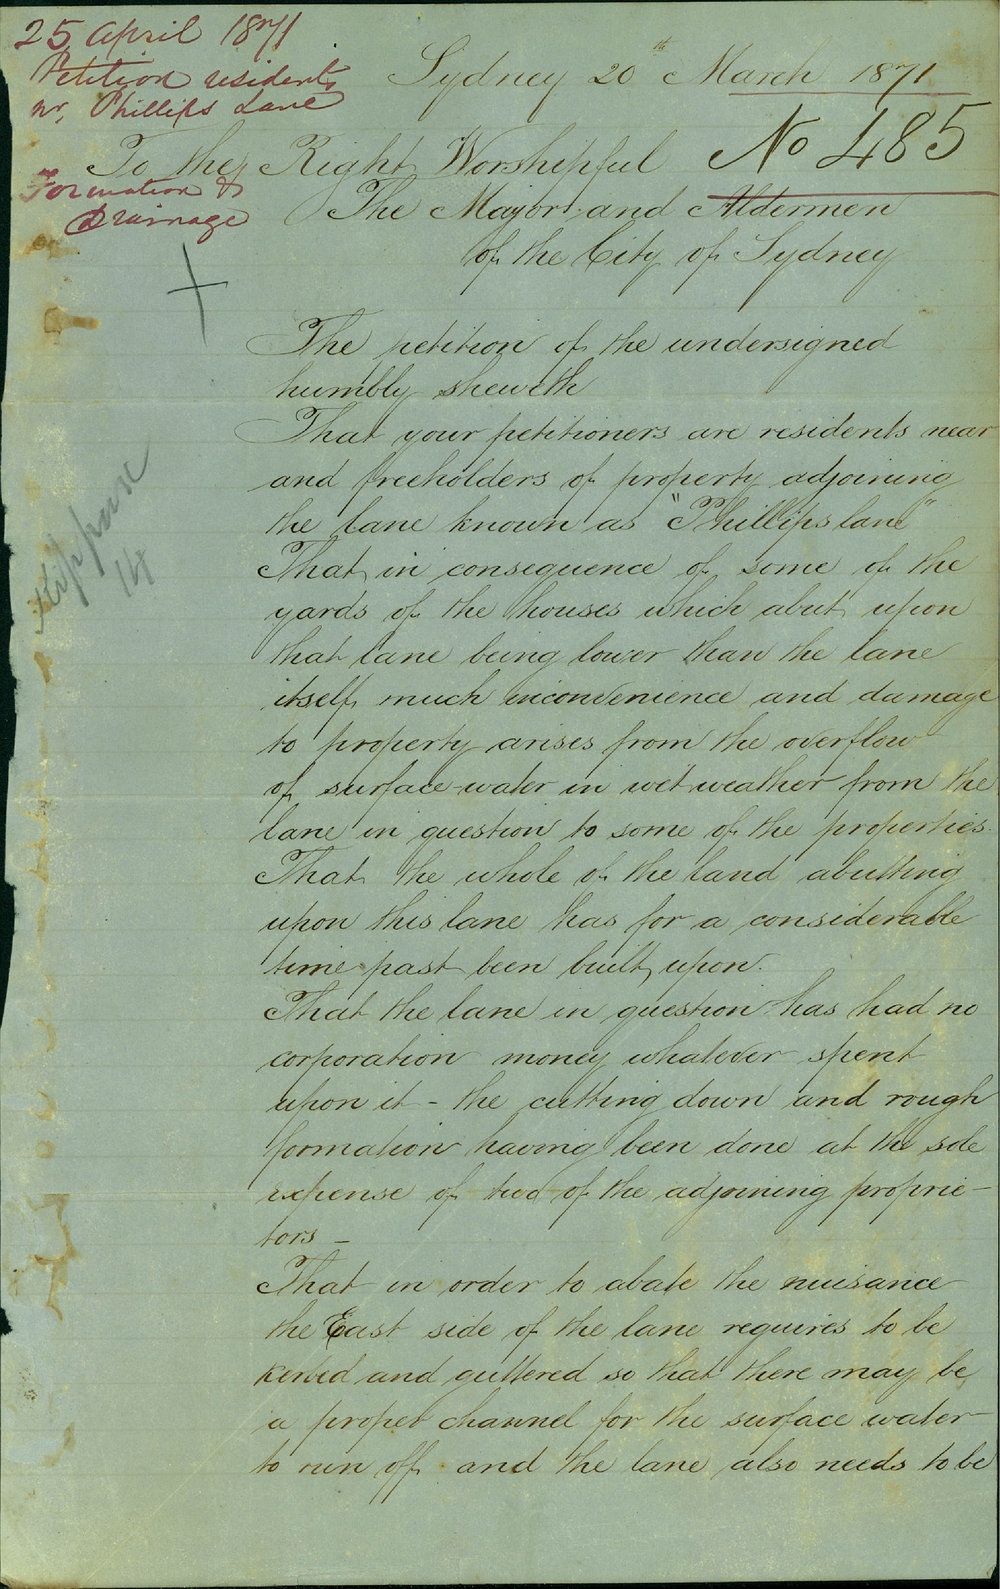 25 April 1871
Petition residents
nr, Phillips Lane
Formation &
Drainage
Sydney 20th March 1871
No 485
To the Right Worshipful
The Mayor and Aldermen
of the City of Sydney
The petition of the undersigned
humbly sheweth
That your petitioners are residents near
and freeholders of property adjoining
the lane known as "Phillips lane"
That in consequence of some of the
yards of the houses which abut upon
that lane being lower than the lane
itself much inconvenience and damage
to property arises from the overflow
of surface water in wet weather from the
lane in question to some of the properties.
That the whole of the land abutting
upon this lane has for a considerable
time past been built upon.
That the lane in question has had no
corporation money whatever spent
upon it - the cutting down and rough
formation having been done at the sole
expense of two of the adjoining proprie-
tors -
That in order to abate the nuisance
the East side of the lane requires to be
kerbed and guttered so that there may be
a proper channel for the surface water
to run off and the lane also needs to be